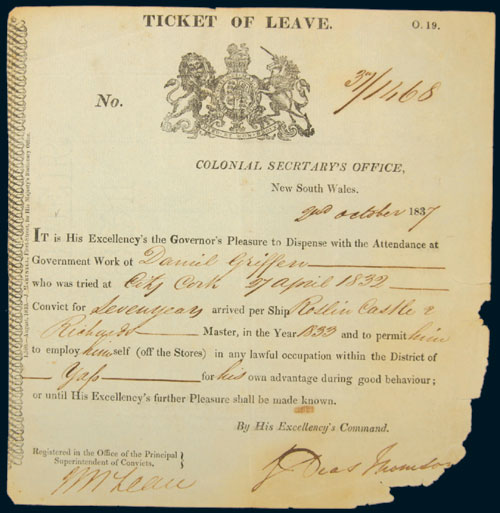 TICKET OF LEAVE.
O. 19.
No.
37/1468
COLONIAL SECRTARY'S OFFICE,
New South Wales.
2nd October 1837
IT is His Excellency's the Governor's Pleasure to Dispense with the Attendance at
Government Work of Daniel Griffen
who was tried at City Cork 7 April 1832
Convict for Seven years arrived per Ship Roslin Castle
Richards Master, in the Year 1833 and to permit him
to employ himself (off the Stores) in any lawful occupation within the District of
Yass for his own advantage during good behaviour;
or until His Excellency's further Pleasure shall be made known.
By His Excellency's Command.
Registered in the Office of the Principal
Superintendent of Convicts.
E Deas Thomson
McLean